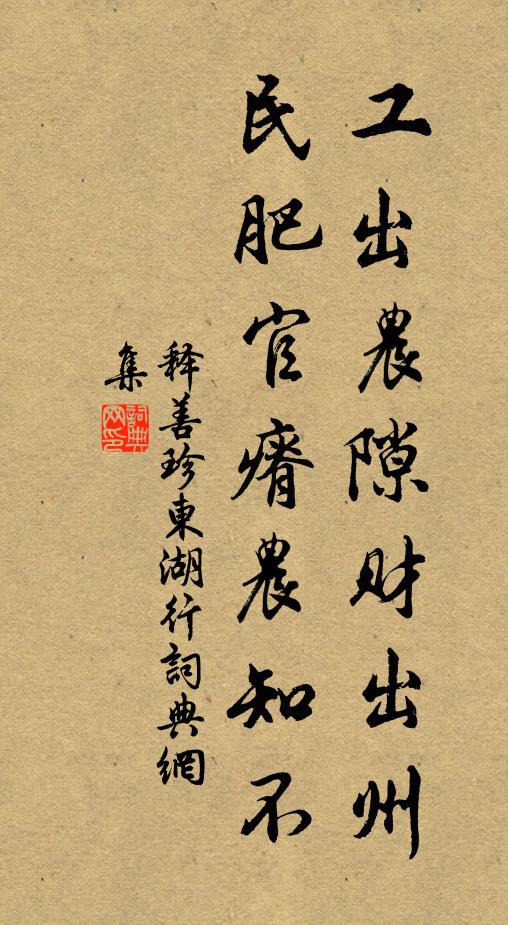 工出農隙財出州
民肥官瘠農知不
释善珍東湖行詞典網
集
詞典
网印